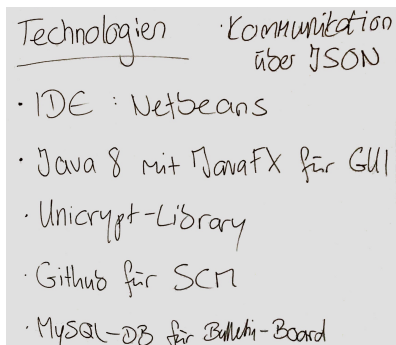 Technologien
· Kommunikation
über JSON
· IDE : Netbeans
· Java 8 mit JavaFX für GUI
· Unicrypt-Library
· Github für SCM
· MySQL-DB für Bulletin-Board